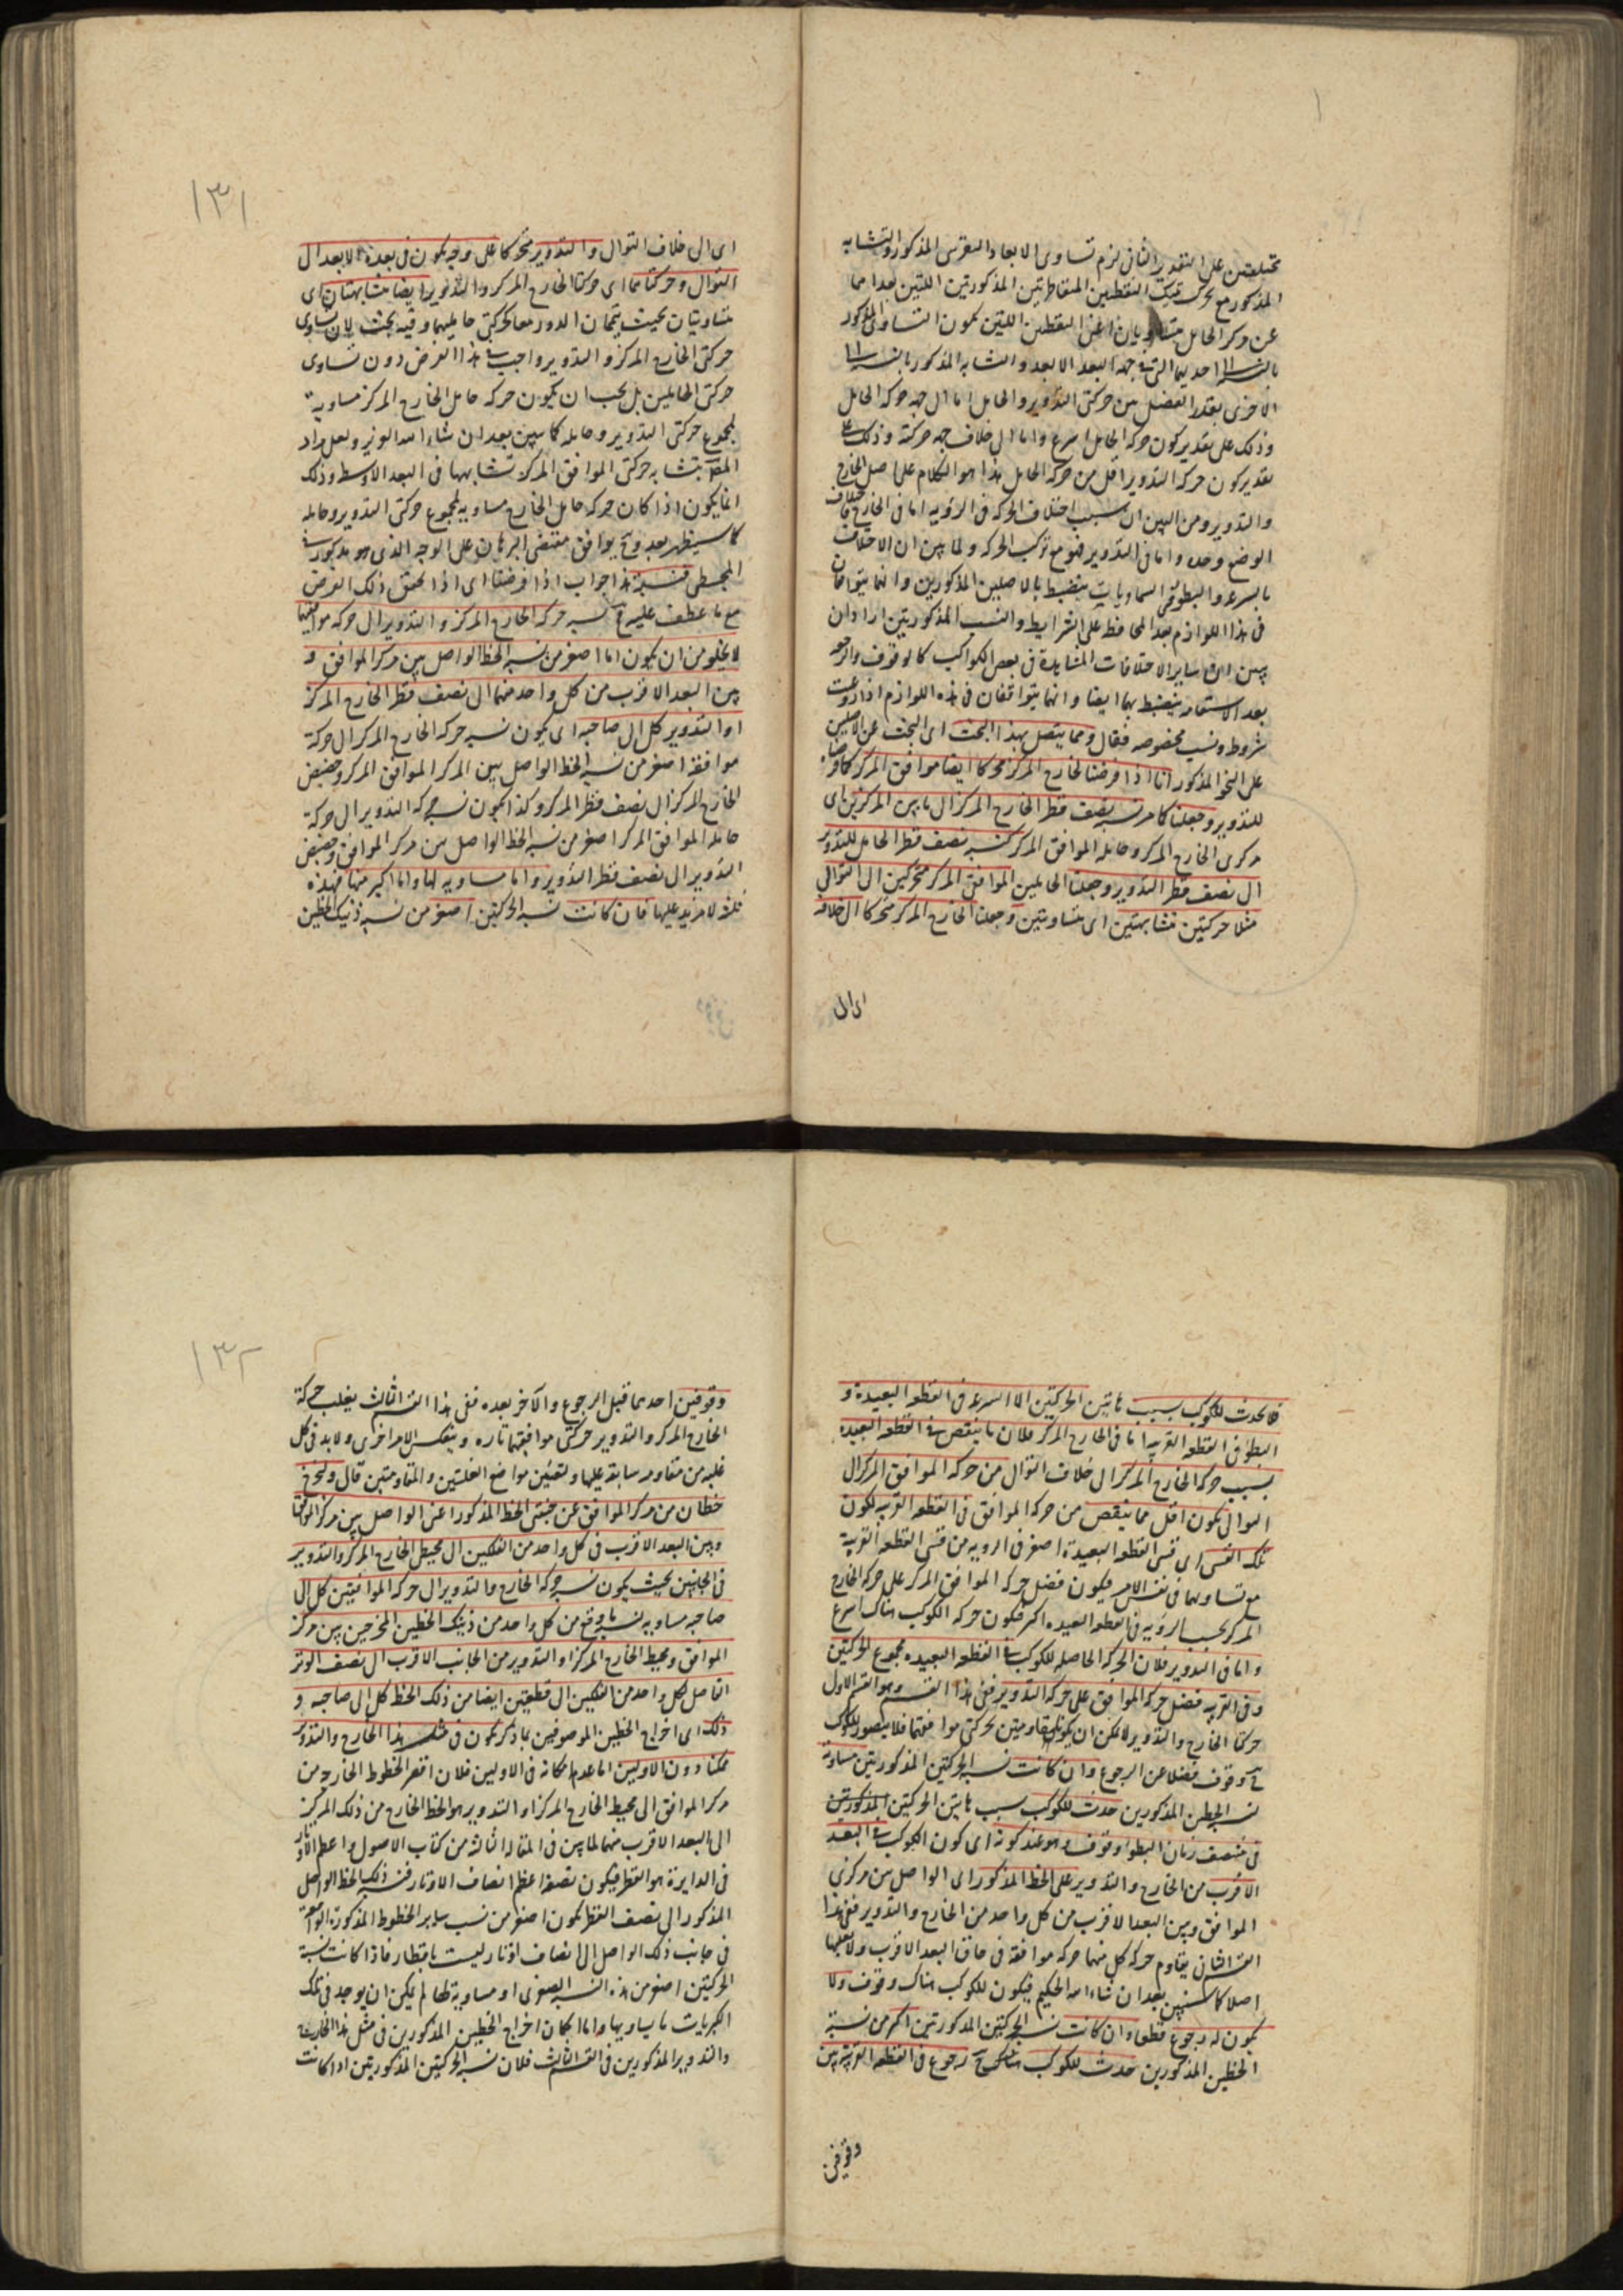 مختلفتين على التقدير الثانى لزم تساوى الابعاد والتعريس المذكور والتشابه
المذكور مع تحرك تينك النقطتين المتقاطرتين المذكورتين اللتين بعداهما
عن مركز الحامل متساويان اعنى النقطتين اللتين يكون التساوى المذكور
بالنسبة الى احديهما التى فى جهة البعد الابعد والتشابه المذكور بالنسبة الى
الاخرى بقدر الفضل بين حركتى التدوير والحامل اما الى جهة حركة الحامل
وذلك على تقدير كون حركة الحامل اسرع واما الى خلاف جهة حركته وذلك على
تقدير كون حركة التدوير اقل من حركة الحامل هذا هو الكلام على اصل الخارج
والتدوير ومن البين ان سبب اختلاف الحركة فى الرؤية اما فى الخارج فاختلاف
الوضع وحده واما فى التدوير فهو مع تركب الحركة ولما بين ان الاختلاف
بالسرعة والبطؤ فى السماويات ينضبط بالاصلين المذكورين وانهما يتوافقان
فى هذا اللوازم بعد المحافظة على الشرايط والنسب المذكورتين اراد ان
يبين ان ساير الاختلافات المشاهدة فى بعض الكواكب كالوقوف والرجوع
بعد الاستقامة ينضبط بهما ايضا وانهما يتوافقان فى هذه اللوازم اذا روعيت
شروط ونسب مخصوصة فقال ومما يتصل بهذا البحث اى البحث عن الاصلين
على النحو المذكور انا اذا فرضنا لخارج المركز محركا ايضا موافق المركز كما فرضناه
للتدوير وجعلنا كما مر نسبة نصف قطر الخارج المركز الى ما بين المركزين اى
مركزى الخارج المركز وحامله الموافق المركز كنسبة نصف قطر الحامل للتدوير
الى نصف قطر التدوير وجعلنا الحاملين الموافقى المركز متحركين الى التوالى
مثلا حركتين متشابهتين اى متساويتين وجعلنا الخارج المركز متحركا الى خلافه
اى الى
١٣١
اى الى خلاف التوالى والتدوير متحركا على وجه يكون فى بعده الابعد الى
التوالى وحركتاهما اى حركتا الخارج المركز والتدوير ايضا متشابهتان اى
متساويتان بحيث يتمان الدور معا كحركتى حامليهما وفيه بحث لان تساوى
حركتى الخارج المركز والتدوير واجب فى هذا الغرض دون تساوى
حركتى الحاملين بل يجب ان يكون حركة حامل الخارج المركز مساوية
لمجموع حركتى التدوير وحامله كما سيبين بعد ان شاء الله العزيز ولعل مراد
المصـ بتشابه حركتى الموافق المركز تشابهها فى البعد الاوسط وذلك
انما يكون اذا كان حركة حامل الخارج مساوية لمجموع حركتى التدوير وحامله
كما سيظهر بعد وح يوافق مقتضى البرهان على الوجه الذى هو مذكور فى
المجسطى فنسبة هذا جواب اذا فرضنا اى اذا تحقق ذلك الفرض
مع ما عطف عليه فنسبة حركة الخارج المركز والتدوير الى حركة موافقهما
لا يخلو من ان يكون اما اصغر من نسبة الخط الواصل بين مركز الموافق و
بين البعد الاقرب من كل واحد منهما الى نصف قطر الخارج المركز
او التدوير كل الى صاحبه اى يكون نسبة حركة الخارج المركز الى حركة
موافقه اصغر من نسبة الخط الواصل بين المركز الموافق المركز وحضيض
الخارج المركز الى نصف قطر المركز وكذا يكون نسبة حركة التدوير الى حركة
حامله الموافق المركز اصغر من نسبة الخط الواصل بين مركز الموافق وحضيض
التدوير الى نصف قطر التدوير واما مساوية لها واما اكبر منها فهذه
ثلثة لا مزيد عليها فان كانت نسبة الحركتين اصغر من نسبة ذينك الخطين
فلا يحدث للكوكب بسبب هاتين الحركتين الا السرعة فى القطعة البعيدة و
البطؤ فى القطعة القريبة اما فى الخارج المركز فلان ما ينقص فى القطعة البعيدة
بسبب حركة الخارج المركز الى خلاف التوالى من حركة الموافق المركز الى
التوالى يكون اقل مما ينقص من حركة الموافق فى القطعة القريبة لكون
تلك القسى اى قسى القطعة البعيدة اصغر فى الروية من قسى القطعة القريبة
مع تساويهما فى نفس الامر فيكون فضل حركة الموافق المركز على حركة الخارج
المركز بحسب الرؤية فى القطعة البعيدة اكثر فيكون حركة الكوكب هناك اسرع
واما فى التدوير فلان الحركة الحاصلة للكوكب فى القطعة البعيدة مجموع الحركتين
وفى القريبة فضل حركة الموافق على حركة التدوير ففى هذا القسم وهو القسم الاول
حركتا الخارج والتدوير لا يمكن ان يكونا مقاومتين لحركتى موافقهما فلا يتصور للكوكب
ح وقوف فضلا عن الرجوع وان كانت نسبة الحركتين المذكورتين مساوية
لنسبة الخطين المذكورين حدث للكوكب بسبب هاتين الحركتين المذكورتين
فى منتصف زمان البطؤ وقوف وهو عند كونه اى كون الكوكب فى البعد
الاقرب من الخارج والتدوير على الخط المذكور اى الواصل بين مركزى
الموافق وبين البعد الاقرب من كل واحد من الخارج والتدوير ففى هذا
القسم الثانى يقاوم حركة كل منهما حركة موافقه فى حاق البعد الاقرب ولا يغلبها
اصلا كما سنبين بعد ان شاء الله الحكيم فيكون للكوكب هناك وقوف ولا
يكون له رجوع قطعا وان كانت نسبة الحركتين المذكورتين اكبر من نسبة
الخطين المذكورين حدث للكوكب هناك رجوع فى القطعة القريبة بين
وقوفين
١٣٢
وقوفين احدهما قبل الرجوع والآخر بعده ففى هذا القسم الثالث يغلب حركة
الخارج المركز والتدوير حركتى موافقهما تارة وينعكس الامر اخرى ولا بد فى كل
غلبة من مقاومة سابقة عليها ولتعيين مواضع الغلبتين والمقاومتين قال ولنخرج
خطان من مركز الموافق عن جنبتى الخط المذكور اعنى الواصل بين مركز الموافق
وبين البعد الاقرب فى كل واحد من الفلكين الى محيط الخارج المركز والتدوير
فى الجانبين بحيث يكون نسبة حركة الخارج والتدوير الى حركة الموافقين كل الى
صاحبه مساوية لنسبة ما وقع من كل واحد من ذينك الخطين المخرجين بين مركز
الموافق ومحيط الخارج المركز او التدوير من الجانب الاقرب الى نصف الوتر
الفاصل لكل واحد من الفلكين الى قطعتين ايضا من ذلك الخط كل الى صاحبه و
ذلك اى اخراج الخطين الموصوفين بما ذكر يكون فى مثل هذا الخارج والتدوير
ممكنا دون الاولين اما عدم امكانه فى الاولين فلان اقصر الخطوط الخارجة من
مركز الموافق الى محيط الخارج المركز او التدوير هو الخط الخارج من ذلك المركز
الى البعد الاقرب منهما لما بين فى المقالة الثالثة من كتاب الاصول واعظم الاوتار
فى الدايرة هو القطر فيكون نصفه اعظم انصاف الاوتار فنسبة ذلك الخط الواصل
المذكور الى نصف القطر يكون اصغر من نسب ساير الخطوط المذكورة الواقعة
فى جانب ذلك الواصل الى انصاف اوتار ليست باقطار فاذا كانت نسبة
الحركتين اصغر من هذه النسبة الصغرى او مساوية لها لم يمكن ان يوجد فى تلك
الكبريات ما يساويها واما امكان اخراج الخطين المذكورين فى مثل هذا الخارج
والتدوير المذكورين فى القسم الثالث فلان نسبة الحركتين المذكورتين اذا كانت